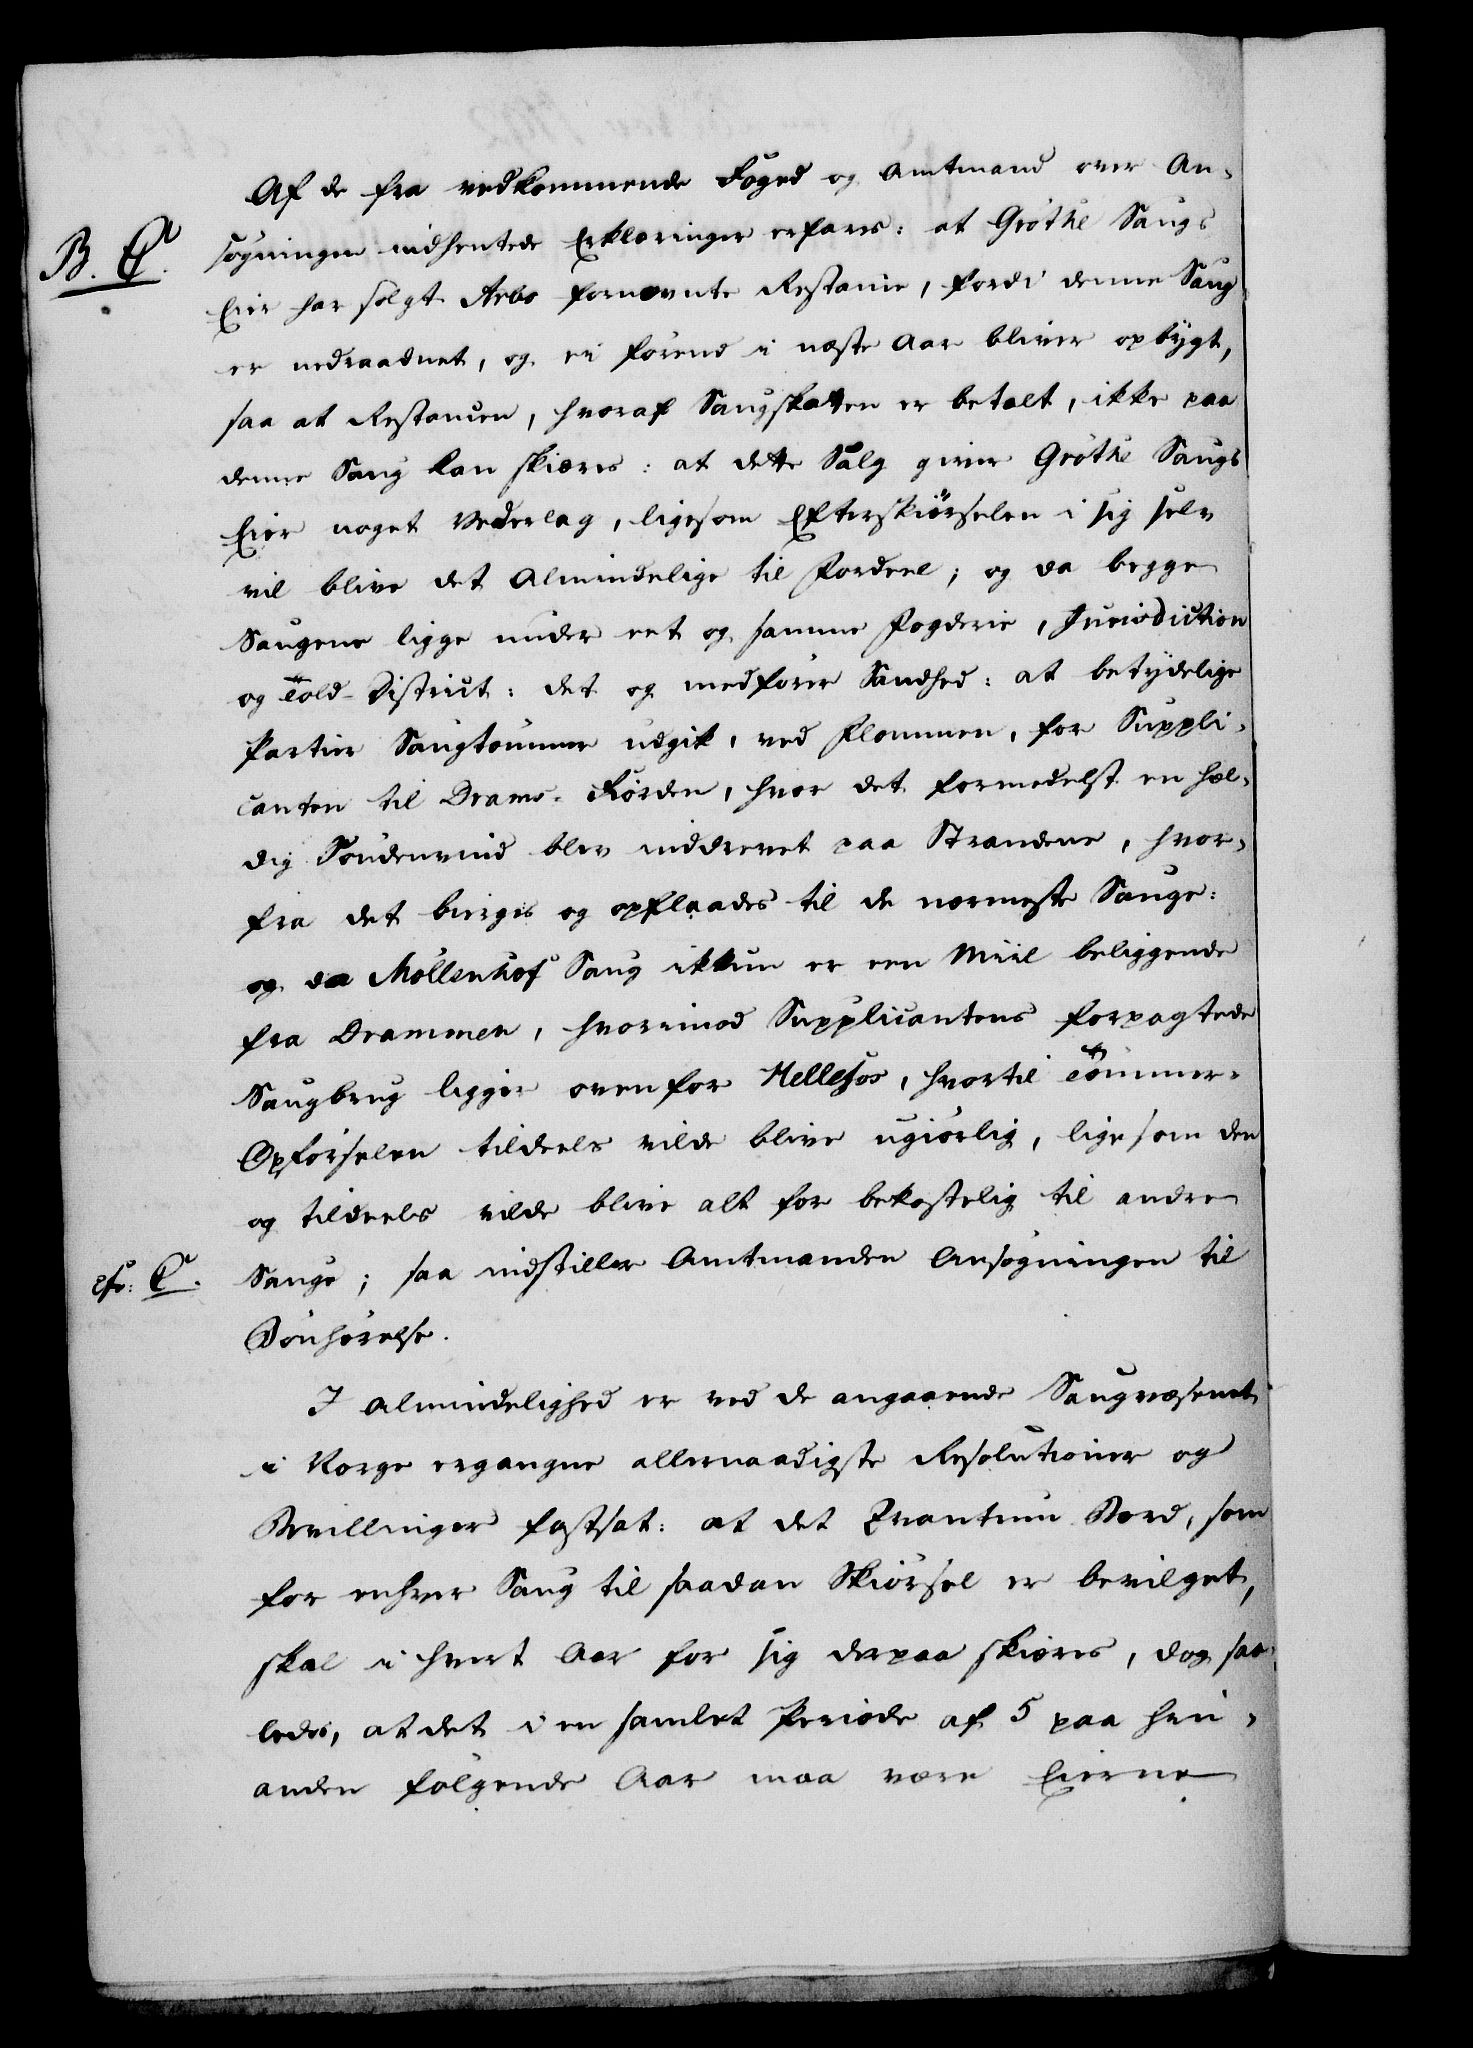 Af de fra vedkommende Foged og Amtmand over An-
B. C. søgningen indhentede Erklæringer erfares: at Grøthe Saugs
Eier har solgt Arbo fornævnte Restance, fordi denne Saug
er nedraadnet, og ei førend i næste Aar bliver opbygt,
saa at Restancen, hvoraf Saugskatten er betalt, ikke paa
denne Saug kan skiæres: at dette Salg giver Grøthe Saugs
Eier noget Vederlag, ligesom Efterskiørselen i sig selv
vil blive det Almindelige til Fordeel; og da begge
Saugene ligge under eet og samme Fogderie, Jurisdiction
og Told-District: det og medfører Sandhed: at betydelige
Partier Saugtømmer udgik, ved Flommen, for Suppli-
canten til Drams-Fiorden, hvor det formedelst en hæf-
dig Søndenvind blev inddrevet paa Strandene, hvor-
fra det bierges og opflaades til de nærmeste Sauge:
og da Møllenhof Saug ikkun er een Miil beliggende
fra Drammen, hvorimod Supplicantens forpagtede
Saugbrug ligger ovenfor Hellefos, hvortil Tømmer-
Opførselen tildeels vilde blive ugiørlig, ligesom den
og tildeels vilde blive alt for bekostelig til andre
cfr: C. Sauge; saa indstiller Amtmanden Ansøgningen til
Bønhørelse.
I Almindelighed er ved de angaaende Saugvæsenet
i Norge ergangne allernaadigste Resolutioner og
Bevillinger fastsat: at det Qvantum Bord, som
for enhver Saug til saadan Skiørsel er bevilget,
skal i hvert Aar for sig derpaa skiæres, dog saa-
ledes, at det i en samlet Periode af 5 paa hin-
anden følgende Aar maa være Eierne